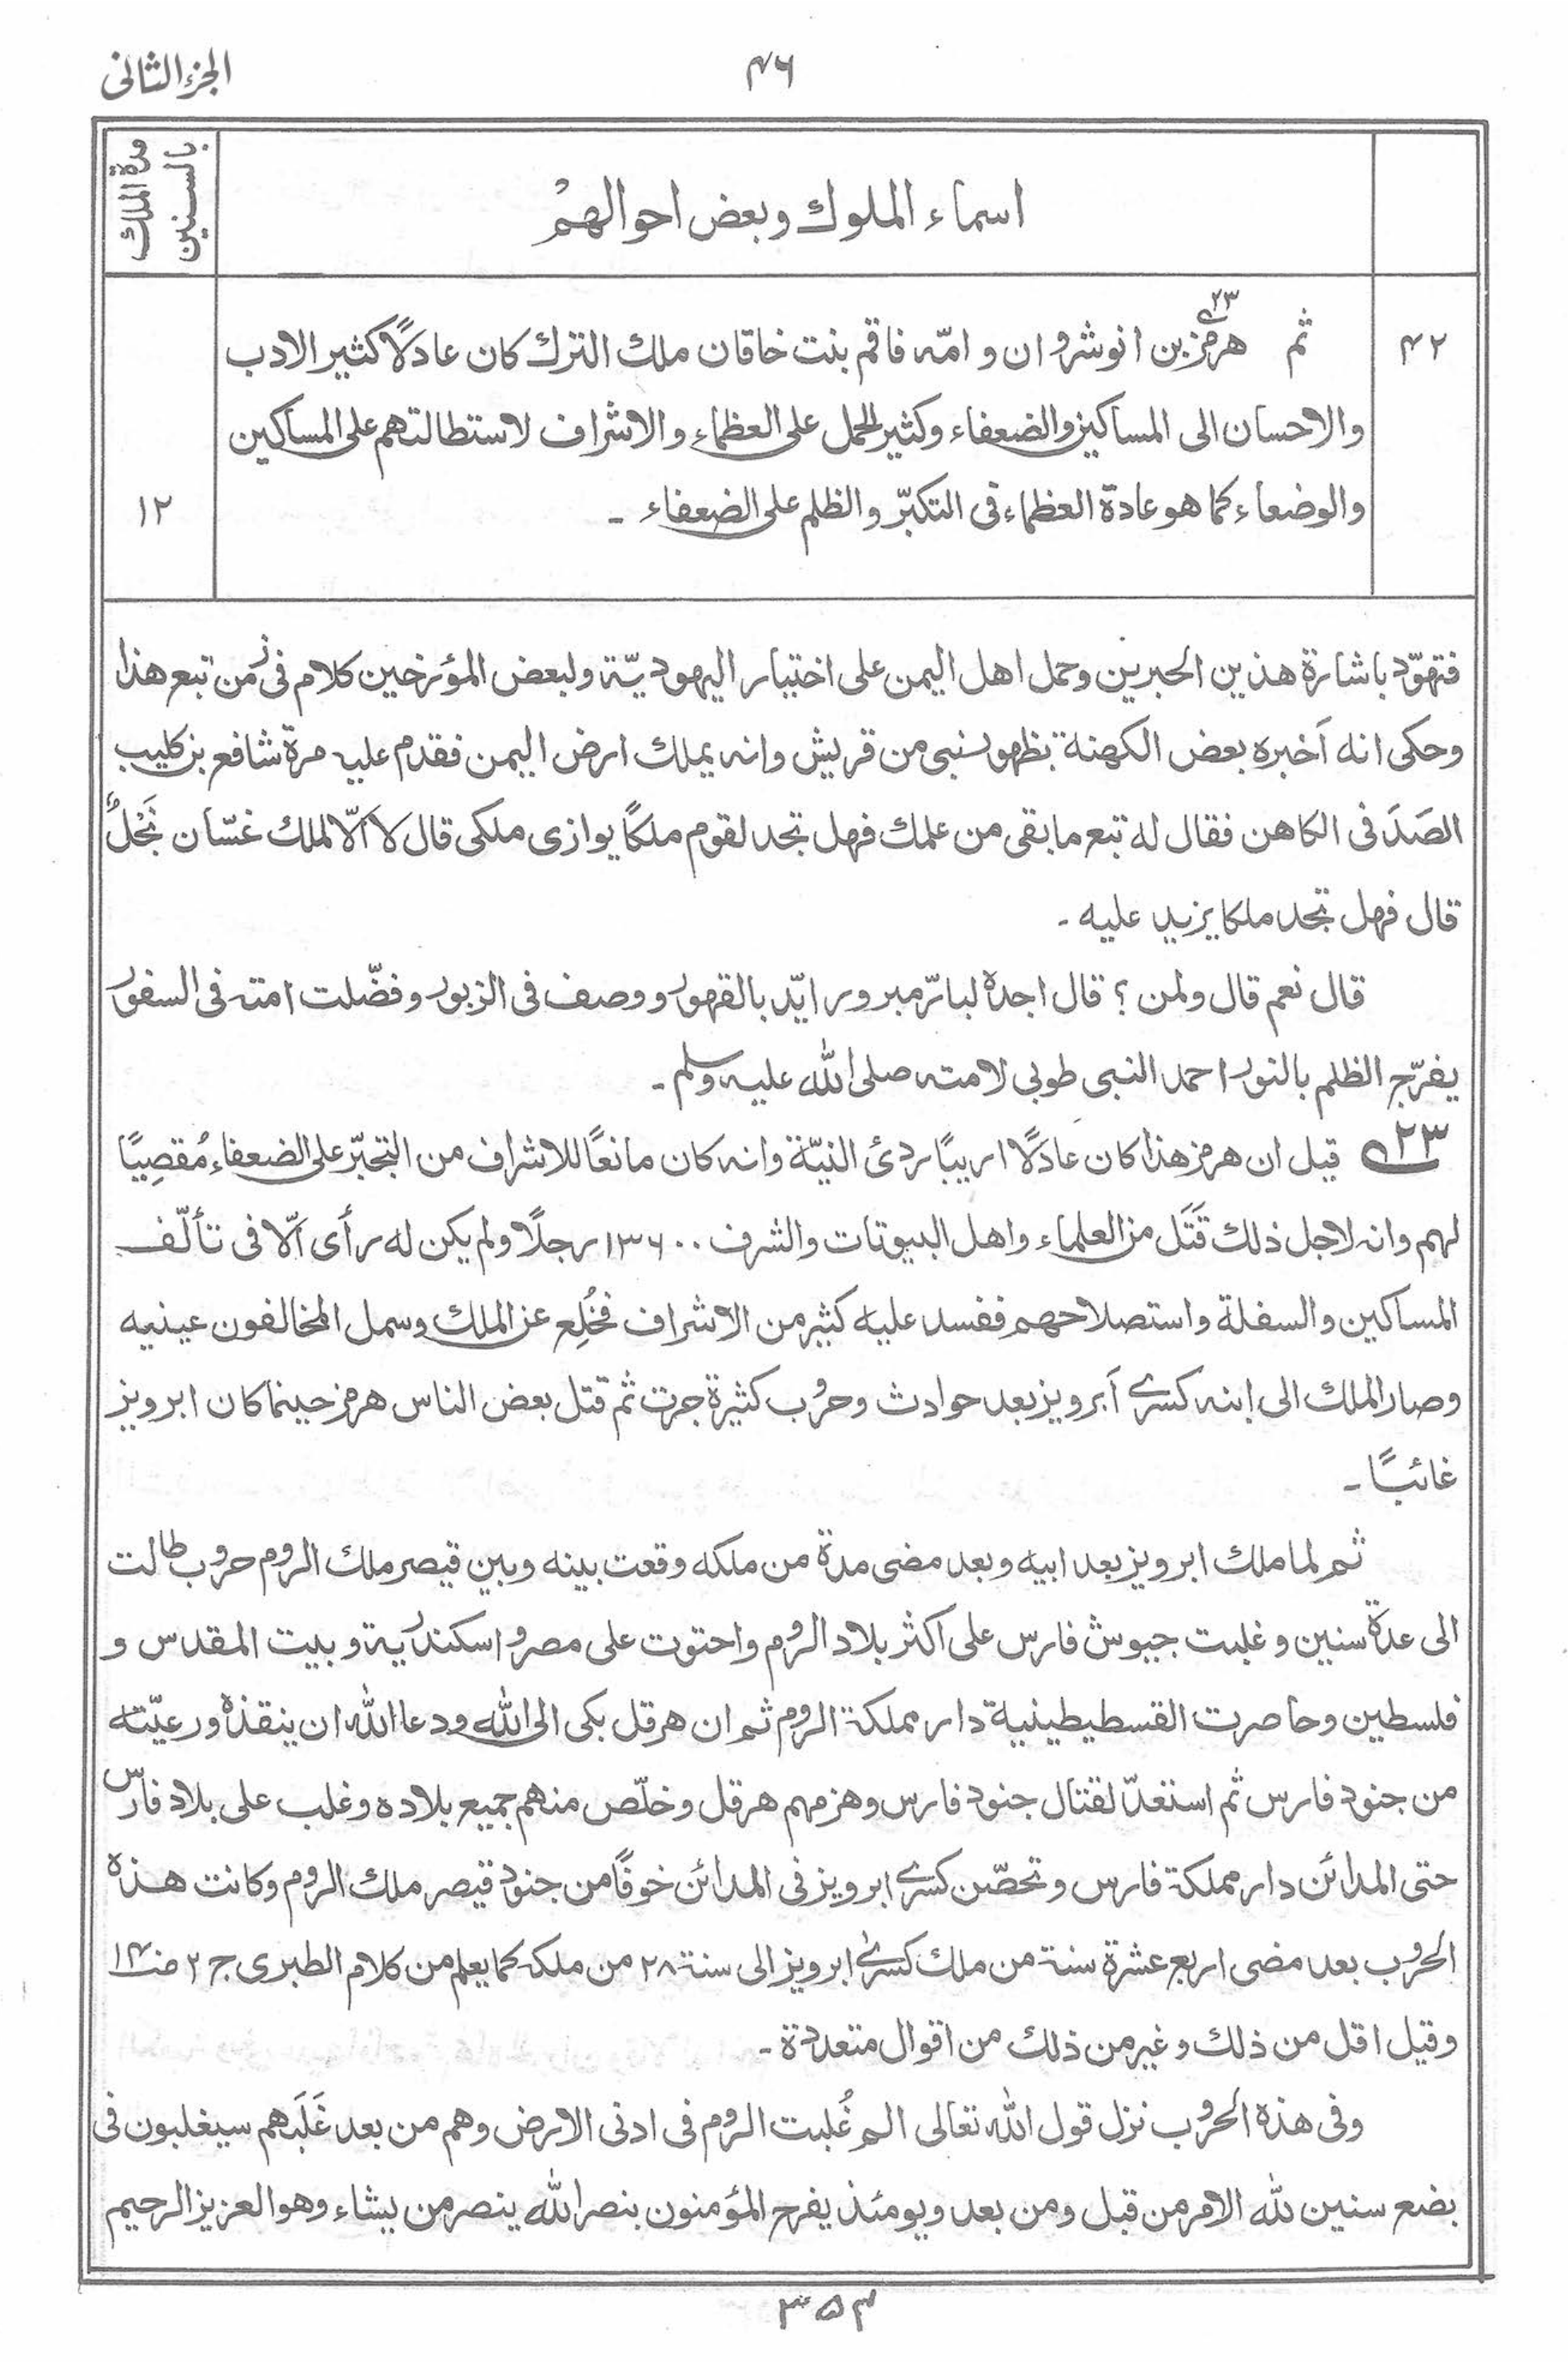 الجزء الثانی
۴۶
مدة الملك
بالسنین
اسماء الملوك وبعض احوالهمْ
۴۲
ثم هرمز۲۳ بن انوشروان و امّه فاقم بنت خاقان ملك الترك كان عادلًا كثير الادب
والاحسان الى المساكين والضعفاء وكثير الحمل على العظماء والاشراف لاستطالتهم على المساكين
والوضعاء كما هو عادة العظماء فى التكبّر والظلم على الضعفاء ۔
۱۲
فتهوّد باشارة هذين الحبرين وحمل اهل اليمن على اختيار اليهوديّة ولبعض المؤرخين كلام فى زمن تبع هذا
وحكى انه اَخبره بعض الكهنة بظهور نبى من قريش وانه يملك ارض اليمن فقدم عليه مرة شافع بن كليب
الصَدَفى الكاهن فقال له تبع ما بقى من علمك فهل تجد لقوم ملكًا يوازى ملكى قال لا الّا لملك غسّان نَجْلٌ
قال فهل تجد ملكا يزيد عليه ۔
قال نعم قال ولمن ؟ قال اجدهٗ لبارّ مبرور ايّد بالقهور ووصف فى الزبور وفضّلت امته فى السفور
يفرّج الظلم بالنور احمد النبى طوبى لامته صلى الله عليه وسلم ۔
۲۳ قيل ان هرمز هذا كان عادلًا اريبًا ردئ النيّة وانه كان مانعًا للاشراف من التجبّر على الضعفاء مُقصِيًا
لهم وانه لاجل ذلك قَتَل من العلماء واهل البيوتات والشرف ۱۳۶۰۰ رجلًا ولم يكن له رأى الّا فى تألّف
المساكين والسفلة واستصلاحهم ففسد عليه كثير من الاشراف فخُلِع عن الملك وسمل المخالفون عينيه
وصار الملك الى ابنه كسرى اَبرويز بعد حوادث وحروب كثيرة جرت ثم قتل بعض الناس هرمز حينما كان ابرويز
غائبًا ۔
ثم لما ملك ابرويز بعد ابيه وبعد مضى مدة من ملكه وقعت بينه وبين قيصر ملك الروم حروب طالت
الى عدة سنين وغلبت جيوش فارس على اكثر بلاد الروم واحتوت على مصر واسكندرية وبيت المقدس و
فلسطين وحاصرت القسطيطينية دار مملكة الروم ثم ان هرقل بكى الى الله ودعا الله ان ينقذهٗ ورعيّته
من جنود فارس ثم استعدّ لقتال جنود فارس وهزمهم هرقل وخلّص منهم جميع بلاده وغلب على بلاد فارس
حتى المدائن دار مملكة فارس وتحصّن كسرى ابرويز فى المدائن خوفًا من جنود قيصر ملك الروم وكانت هذه
الحروب بعد مضى اربع عشرة سنة من ملك كسرىٰ ابرويز الى سنة ۲۸ من ملكه كما يعلم من كلام الطبرى ج ۲ ص۱۴۰
وقيل اقل من ذلك وغير من ذلك من اقوال متعددة ۔
وفى هذه الحروب نزل قول الله تعالى الم غُلبت الروم فى ادنى الارض وهم من بعد غَلَبهم سيغلبون فى
بضع سنين لله الامر من قبل ومن بعد ويومئذ يفرح المؤمنون بنصر الله ينصر من يشاء وهو العزيز الرحيم
۳۵۳